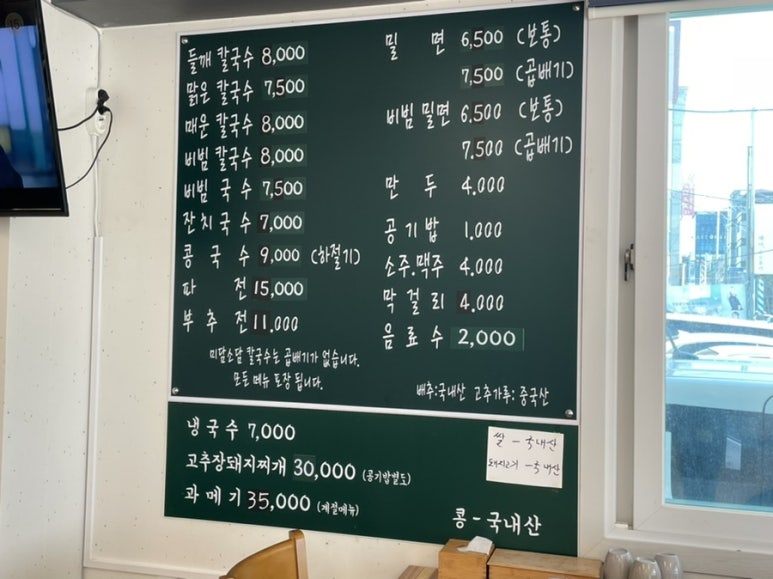 들깨 칼국수 8,000
맑은 칼국수 7,500
매운 칼국수 8,000
비빔 칼국수 8,000
비빔 국수 7,500
잔치국수 7,000
콩 국수 9,000 (하절기)
파 전 15,000
부추전 11,000
미담소담 칼국수는 곱배기가 없습니다.
모든 메뉴 포장 됩니다.
밀 면 6,500 (보통)
7,500 (곱배기)
비빔 밀면 6,500 (보통)
7,500 (곱배기)
만 두 4,000
공기밥 1,000
소주.맥주 4,000
막걸리 4,000
음료수 2,000
배추:국내산 고추가루: 중국산
냉국수 7,000
고추장돼지찌개 30,000 (공기밥별도)
과메기 35,000 (계절메뉴)
쌀 - 국내산
돼지고기 - 국내산
콩 - 국내산